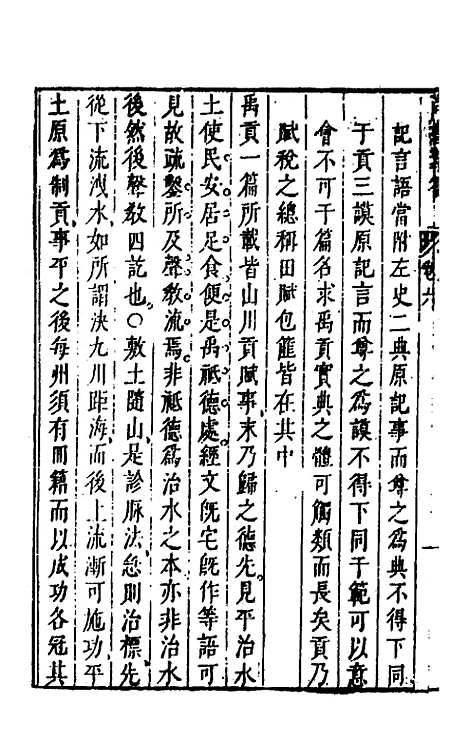 卷六
一
記言語當附左史二典原記事而尊之為典不得下同
于貢三謨原記言而尊之為謨不得下同于範可以意
會不可于篇名求禹貢實典之體可觸類而長矣貢乃
賦稅之總稱田賦包篚皆在其中
禹貢一篇所載皆山川貢賦事末乃歸之德先見平治水
土使民安居足食便是禹祗德處經文既宅既作等語可
見故疏鑿所及聲教流焉非祗德為治水之本亦非治水
後然後聲教四訖也○敷土隨山是診脉法急則治標先
從下流洩水如所謂決九川距海而後上流漸可施功平
土原為制貢事平之後每州須有冊籍而以成功各冠其